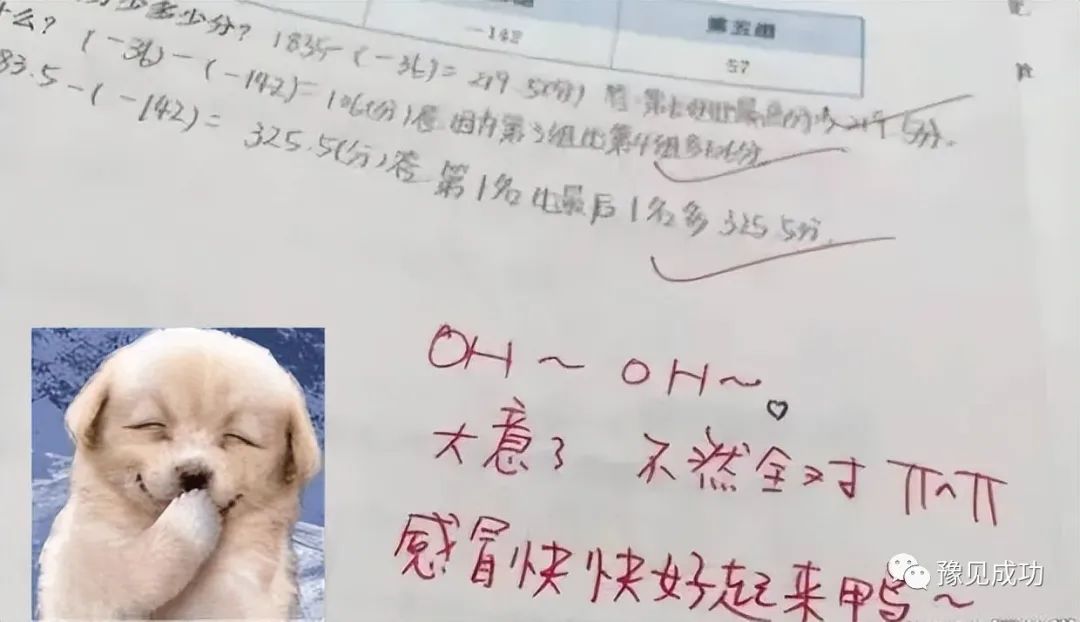 第五组
-142
57
什么？
少多少分？ 183.5-(-36)=219.5(分) 答
(-36)-(-142)=106(分)答.因为第3组比第4组多106分
83.5-(-142)= 325.5(分)答.第1名比最后1名多325.5分.
OH~ OH~
大意了 不然全对 π^π
感冒快快好起来鸭~
豫见成功